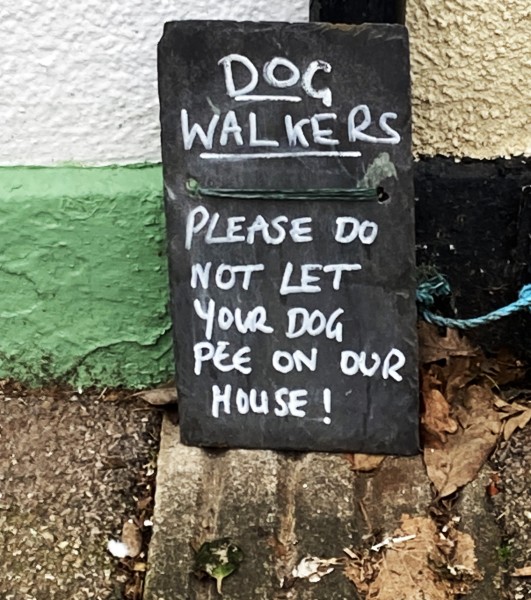 DOG
WALKERS
PLEASE DO
NOT LET
YOUR DOG
PEE ON OUR
HOUSE!